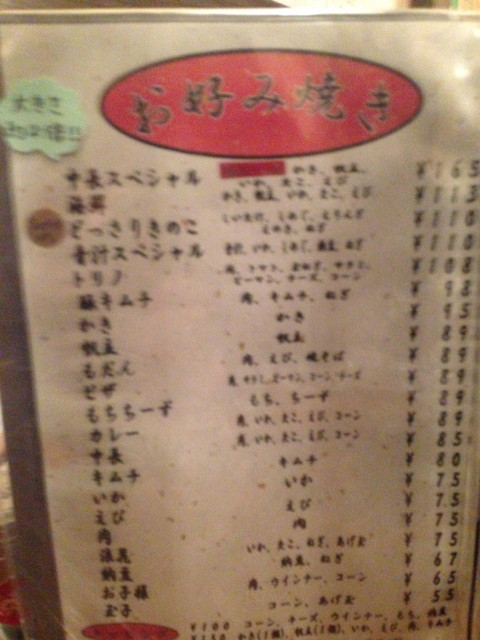 お好み焼き
大きさ
中長スペシャル かき、帆立、 ¥165
いか、たこ、えび
海鮮 かき、帆立、いか、たこ、えび ¥113
どっさりきのこ しいたけ、しめじ、えりんぎ ¥110
えのき、ねぎ
青汁スペシャル ¥110
トリノ ピーマン、チーズ、コーン ¥108
豚キムチ 肉、キムチ、ねぎ ¥98
かき かき ¥95
帆立 帆立 ¥89
もだん 肉、えび、焼そば ¥89
ピザ ¥89
もちちーず もち、ちーず ¥89
カレー 肉、いか、たこ、えび、コーン ¥89
中長 肉、いか、たこ、えび、コーン ¥85
キムチ キムチ ¥80
いか いか ¥75
えび えび ¥75
肉 肉 ¥75
浪花 いか、たこ、ねぎ、あげ玉 ¥75
納豆 納豆、ねぎ ¥67
お子様 肉、ウインナー、コーン ¥65
玉子 コーン、あげ玉 ¥55
¥100 コーン、チーズ、ウインナー、もち、納豆
¥150 かき(1個)、帆立(1個)、いか、えび、肉